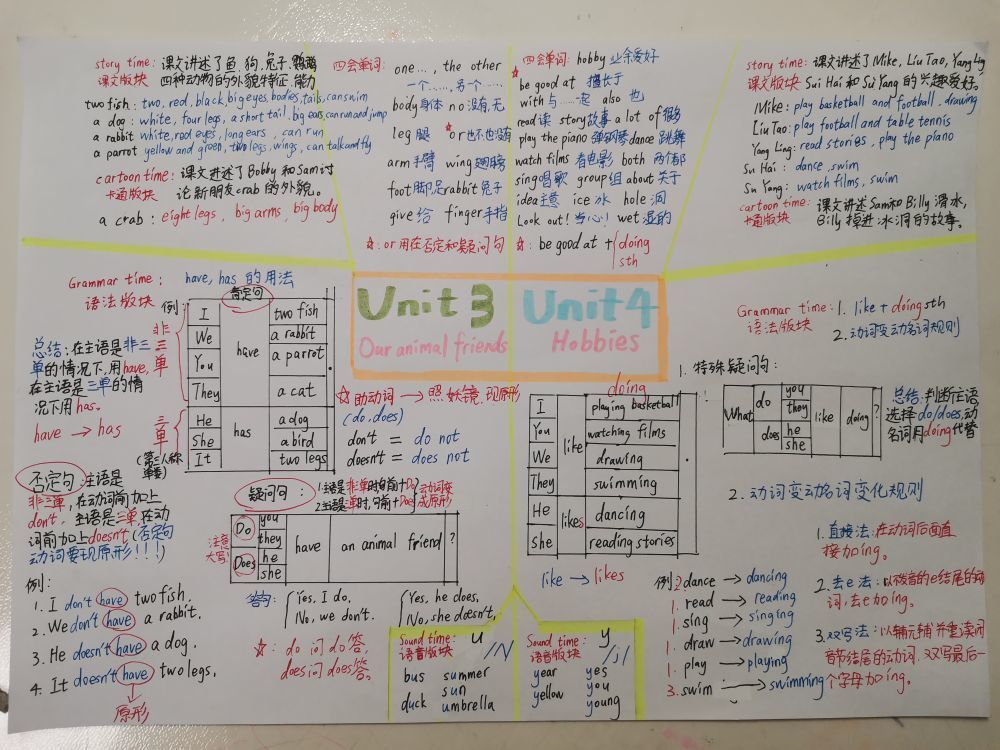 story time: 课文讲述了鱼,狗,兔子,鹦鹉
课文版块 四种动物的外貌特征、能力
two fish: two, red, black, big eyes, bodies, tails, can swim
a dog: white, four legs, a short tail. big ears, can run and jump
a rabbit white, red eyes, long ears, can run
a parrot yellow and green, two legs, wings, can talk and fly
cartoon time: 课文讲述了Bobby 和Sam讨
卡通版块 论新朋友crab的外貌。
a crab: eight legs, big arms, big body
四会单词: one..., the other
一个……, 另一个……
body身体 no没有,无
leg 腿 ☆or也不,也没有
arm手臂 wing翅膀
foot脚,足 rabbit兔子
give 给 finger手指
☆: or 用在否定和疑问句
四会单词: hobby 业余爱好
☆be good at 擅长于
with与……一起 also 也
read读 story故事 a lot of 很多
play the piano 弹钢琴 dance 跳舞
watch films 看电影 both 两个都
sing唱歌 group组 about关于
idea主意 ice 冰 hole 洞
Look out! 当心! wet 湿的
☆: be good at + doing
sth
story time: 课文讲述了Mike, Liu Tao, Yang Ling
课文版块 Su Hai 和 Su Yang 的兴趣爱好。
Mike: play basketball and football, drawing
Liu Tao: play football and table tennis
Yang Ling: read stories, play the piano
Su Hai: dance, swim
Su Yang: watch films, swim
cartoon time: 课文讲述Sam和Billy 滑冰,
卡通版块 Billy 掉进冰洞的故事。
Unit 3
Our animal friends
Unit 4
Hobbies
Grammar time: have, has 的用法
语法版块
例: 肯定句
I
We
You
They
have
two fish
a rabbit
a parrot
a cat
.
He
She
It
has
a dog
a bird
two legs
非三单
三单
(第三人称单数)
总结:在主语是非三
单的情况下,用have,
在主语是三单的情
况下用has。
have → has
否定句:主语是
非三单,在动词前加上
don't, 主语是三单,在动
词前加上doesn't(否定句
动词要现原形!!!)
例:
1. I don't have two fish.
2. We don't have a rabbit.
3. He doesn't have a dog.
4. It doesn't have two legs.
原形
☆助动词 → 照妖镜,现原形
(do, does)
don't = do not
doesn't = does not
疑问句: 1.主语是非三单时,句前+Do
2.主语是三单时,句前+Does
动词变成原形
注意大写
Do
Does
you
they
he
she
have
an animal friend
?
答句: Yes, I do.
No, we don't.
Yes, he does.
No, she doesn't.
☆: do 问 do答,
does问 does答。
Sound time: u
语音版块 /ʌ/
bus summer
sun
duck umbrella
Sound time: y
语音版块 /j/
year yes
yellow you
young
doing
I
You
We
They
like
He
She
likes
playing basketball
watching films
drawing
swimming
dancing
reading stories
.
like → likes
Grammar time: 1. like + doing sth
语法版块 2. 动词变动名词规则
1. 特殊疑问句:
What
do
does
you
they
he
she
like
doing
?
总结: 判断主语
选择do/does,动
名词用doing代替
2. 动词变动名词变化规则
1. 直接法: 在动词后面直
接加ing。
2. 去e法: 以不发音的e结尾的动
词,去e加ing。
3. 双写法: 以辅元辅并重读闭
音节结尾的动词,双写最后一
个字母加ing。
例: 2. dance → dancing
1. read → reading
1. sing → singing
1. draw → drawing
1. play → playing
3. swim → swimming